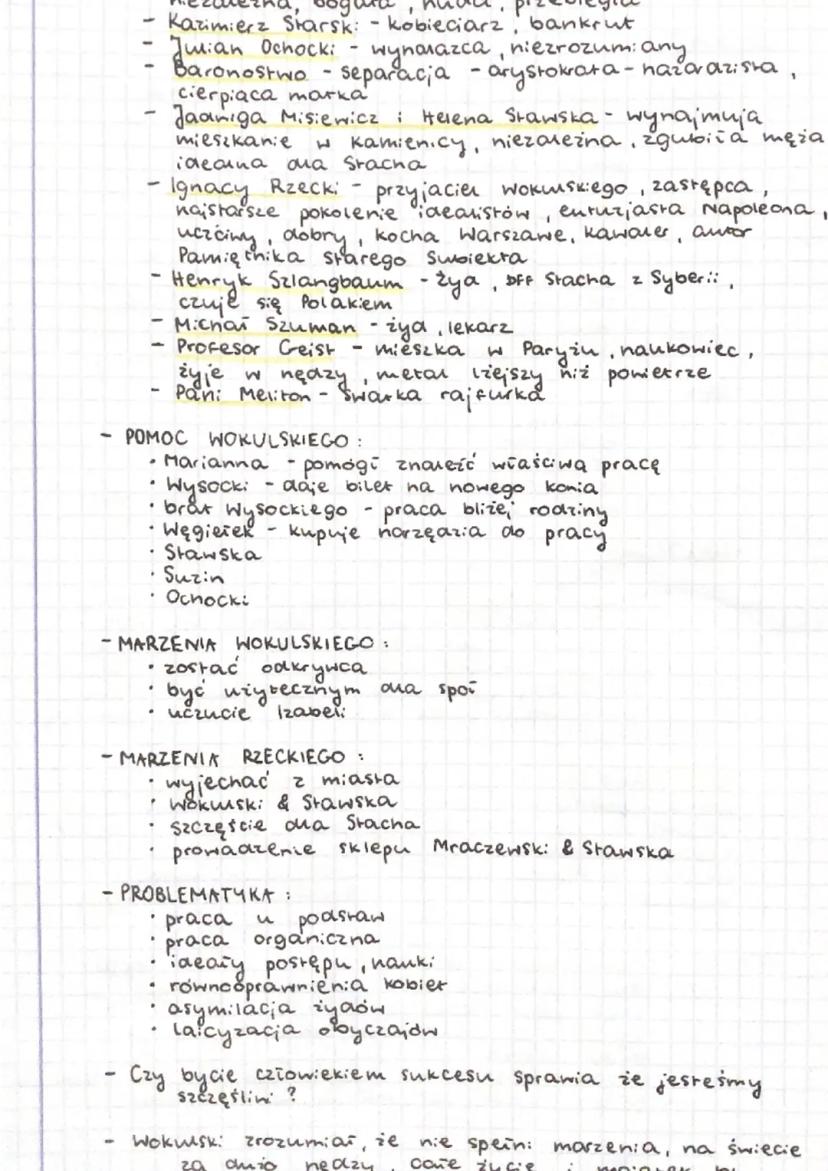 niezależna, bogata, nuda, przebiegła
- Kazimierz Starski - kobieciarz, bankrut
- Julian Ochocki - wynalazca, niezrozumiany
- Baronostwo - separacja - arystokrata - hazardzista,
cierpiąca matka
- Jadwiga Misiewicz i Helena Stawska - wynajmują
mieszkanie w kamienicy, niezależna, zgubiła męża
idealna dla Stacha
- Ignacy Rzecki - przyjaciel Wokulskiego, zastępca,
najstarsze pokolenie idealistów, entuzjasta Napoleona,
uczciwy, dobry, kocha Warszawe, kawaler, autor
Pamiętnika starego Subiekta
- Henryk Szlangbaum - żyd, BFF Stacha z Syberii,
czuje się Polakiem
- Michał Szuman - żyd, lekarz
- Profesor Geist - mieszka w Paryżu, naukowiec,
żyje w nędzy, metal lżejszy niż powietrze
- Pani Meliton - swatka rajfurka
- POMOC WOKULSKIEGO:
· Marianna - pomógł znaleźć właściwą pracę
· Wysocki - daje bilet na nowego konia
· brat Wysockiego - praca bliżej rodziny
· Węgiełek - kupuje narzędzia do pracy
· Stawska
· Suzin
· Ochocki
- MARZENIA WOKULSKIEGO:
· zostać odkrywcą
· być użytecznym dla społ
· uczucie Izabeli
- MARZENIA RZECKIEGO:
· wyjechać z miasta
· Wokulski & Stawska
· szczęście dla Stacha
· prowadzenie sklepu Mraczewski & Stawska
- PROBLEMATYKA:
· praca u podstaw
· praca organiczna
· ideały postępu, nauki
· równouprawnienia kobiet
· asymilacja żydów
· laicyzacja obyczajów
- Czy bycie człowiekiem sukcesu sprawia że jesteśmy
szczęśliwi?
- Wokulski zrozumiał, że nie spełni marzenia, na świecie
za dużo nędzy, całe życie i majątek